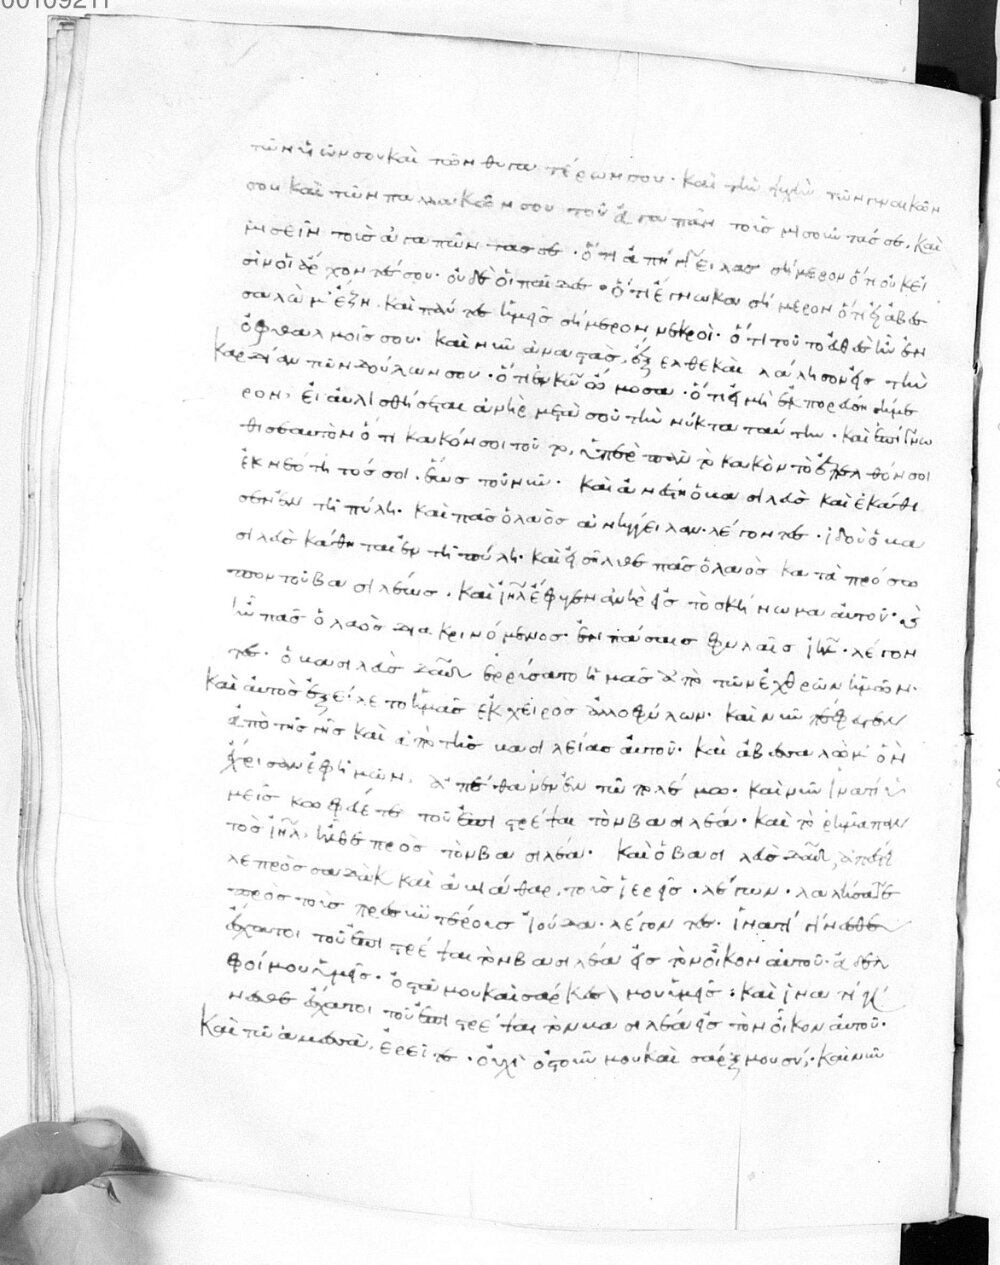 00109211
τῶν υἱῶν σου καὶ τῶν θυγατέρων σου· καὶ τὴν ψυχὴν τῶν γυναικῶν
σου καὶ τῶν παλλακῶν σου τοῦ ἀγαπᾶν τοὺς μισοῦντάς σε. καὶ
μισεῖν τοὺς ἀγαπῶντας σε· ὅτι ἀπήγγειλας σήμερον ὅτι οὐκ εἰ
σὶν οἱ ἄρχοντές σου· οὐδὲ οἱ παῖδες· ὅτι ἔγνωκα σήμερον ὅτι εἰ ἀβεσ
σαλὼμ ἔζη. καὶ πάντες ἡμεῖς σήμερον νεκροί· ὅτι τοῦτο εὐθὲς ἦν ἐν
ὀφθαλμοῖς σου· καὶ νῦν ἀναστὰς, ἔξελθε καὶ λάλησον εἰς τὴν
καρδίαν τῶν δούλων σου· ὅτι ἐν κῶ ὤμοσα· ὅτι εἰ μὴ ἐκπορεύσῃ σήμε
ρον, εἰ αὐλισθήσεται ἀνὴρ μετὰ σοῦ τὴν νύκτα ταύτην· καὶ ἐπίγνω
θι σεαυτὸν ὅτι κακόν σοι τοῦτο, ὑπὲρ πᾶν τὸ κακὸν τὸ ἐπελθόν σοι
ἐκ νεότητός σοι. ἕως τοῦ νῦν· καὶ ἀνέστη ὁ βασιλεὺς καὶ ἐκάθι
σεν ἐν τῇ πύλῃ· καὶ πᾶς ὁ λαὸς ἀνήγγειλαν λέγοντες· ἰδοὺ ὁ βα
σιλεὺς κάθηται ἐν τῇ πύλῃ· καὶ εἰσῆλθε πᾶς ὁ λαὸς κατὰ πρόσω
πον τοῦ βασιλέως. καὶ ἰηλ ἔφυγεν ἀνὴρ εἰς τὸ σκήνωμα αὐτοῦ· καὶ
ἦν πᾶς ὁ λαὸς διακρινόμενος ἐν πάσαις φυλαῖς ἰηλ· λέγον
τες· ὁ βασιλεὺς δαδ ἐρρύσατο ἡμᾶς ἀπὸ τῶν ἐχθρῶν ἡμῶν·
καὶ αὐτὸς ἐξείλετο ἡμᾶς ἐκ χειρὸς ἀλλοφύλων· καὶ νῦν πέφευγεν
ἀπὸ τῆς γῆς καὶ ἀπὸ τῆς βασιλείας αὐτοῦ· καὶ ἀβεσσαλὼμ ὃν
ἐχρίσαμεν ἐφ ἡμῶν, ἀπέθανεν ἐν τῶ πολέμω· καὶ νῦν ἱνατί ὑ
μεῖς κωφεύετε τοῦ ἐπιστρέψαι τὸν βασιλέα· καὶ τὸ ῥῆμα παν
τὸς ἰηλ, ἦλθε πρὸς τὸν βασιλέα· καὶ ὁ βασιλεὺς δαδ, ἀπέστει
λε πρὸς σαδὼκ καὶ ἀβιάθαρ, τοὺς ἱερεῖς· λέγων· λαλήσατε
πρὸς τοὺς πρεσβυτέρους ἰούδα· λέγοντες· ἱνατί γίνεσθε
ἔσχατοι τοῦ ἐπιστρέψαι τὸν βασιλέα εἰς τὸν οἶκον αὐτοῦ· ἀδελ
φοί μου ὑμεῖς· ὀστᾶ μου καὶ σάρκες μου ὑμεῖς· καὶ ἵνα τί γί
νεσθε ἔσχατοι τοῦ ἐπιστρέψαι τὸν βασιλέα εἰς τὸν οἶκον αὐτοῦ·
καὶ τῶ ἀμεσσὰ, ἐρεῖτε· οὐχὶ ὀστοῦν μου καὶ σάρξ μου σύ; καὶ νῦν